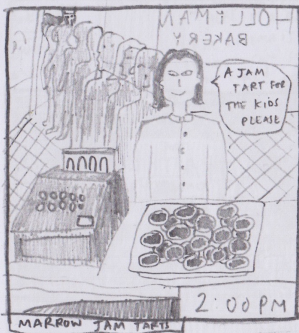 HOLLYMAN
BAKERY
A JAM
TART FOR
THE KIDS
PLEASE
2:00PM
MARROW JAM TARTS